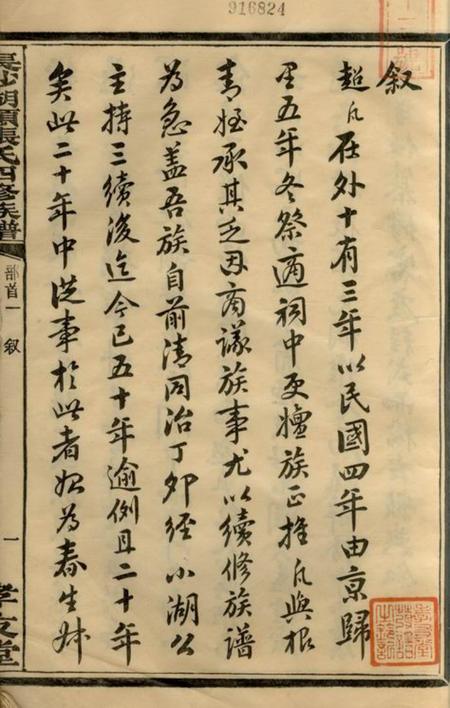 916824
叙
超凡在外十有三年以民國四年由京歸
里五年冬祭適祠中更嬗族正推凡與根
青姪承其乏因商議族事尤以續修族譜
為急蓋吾族自前清同治丁卯經小湖公
主持三續後迄今已五十年逾例且二十年
矣此二十年中從事於此者始為春生
長沙湖頭張氏四修族譜
部首一
叙
一
孝友堂